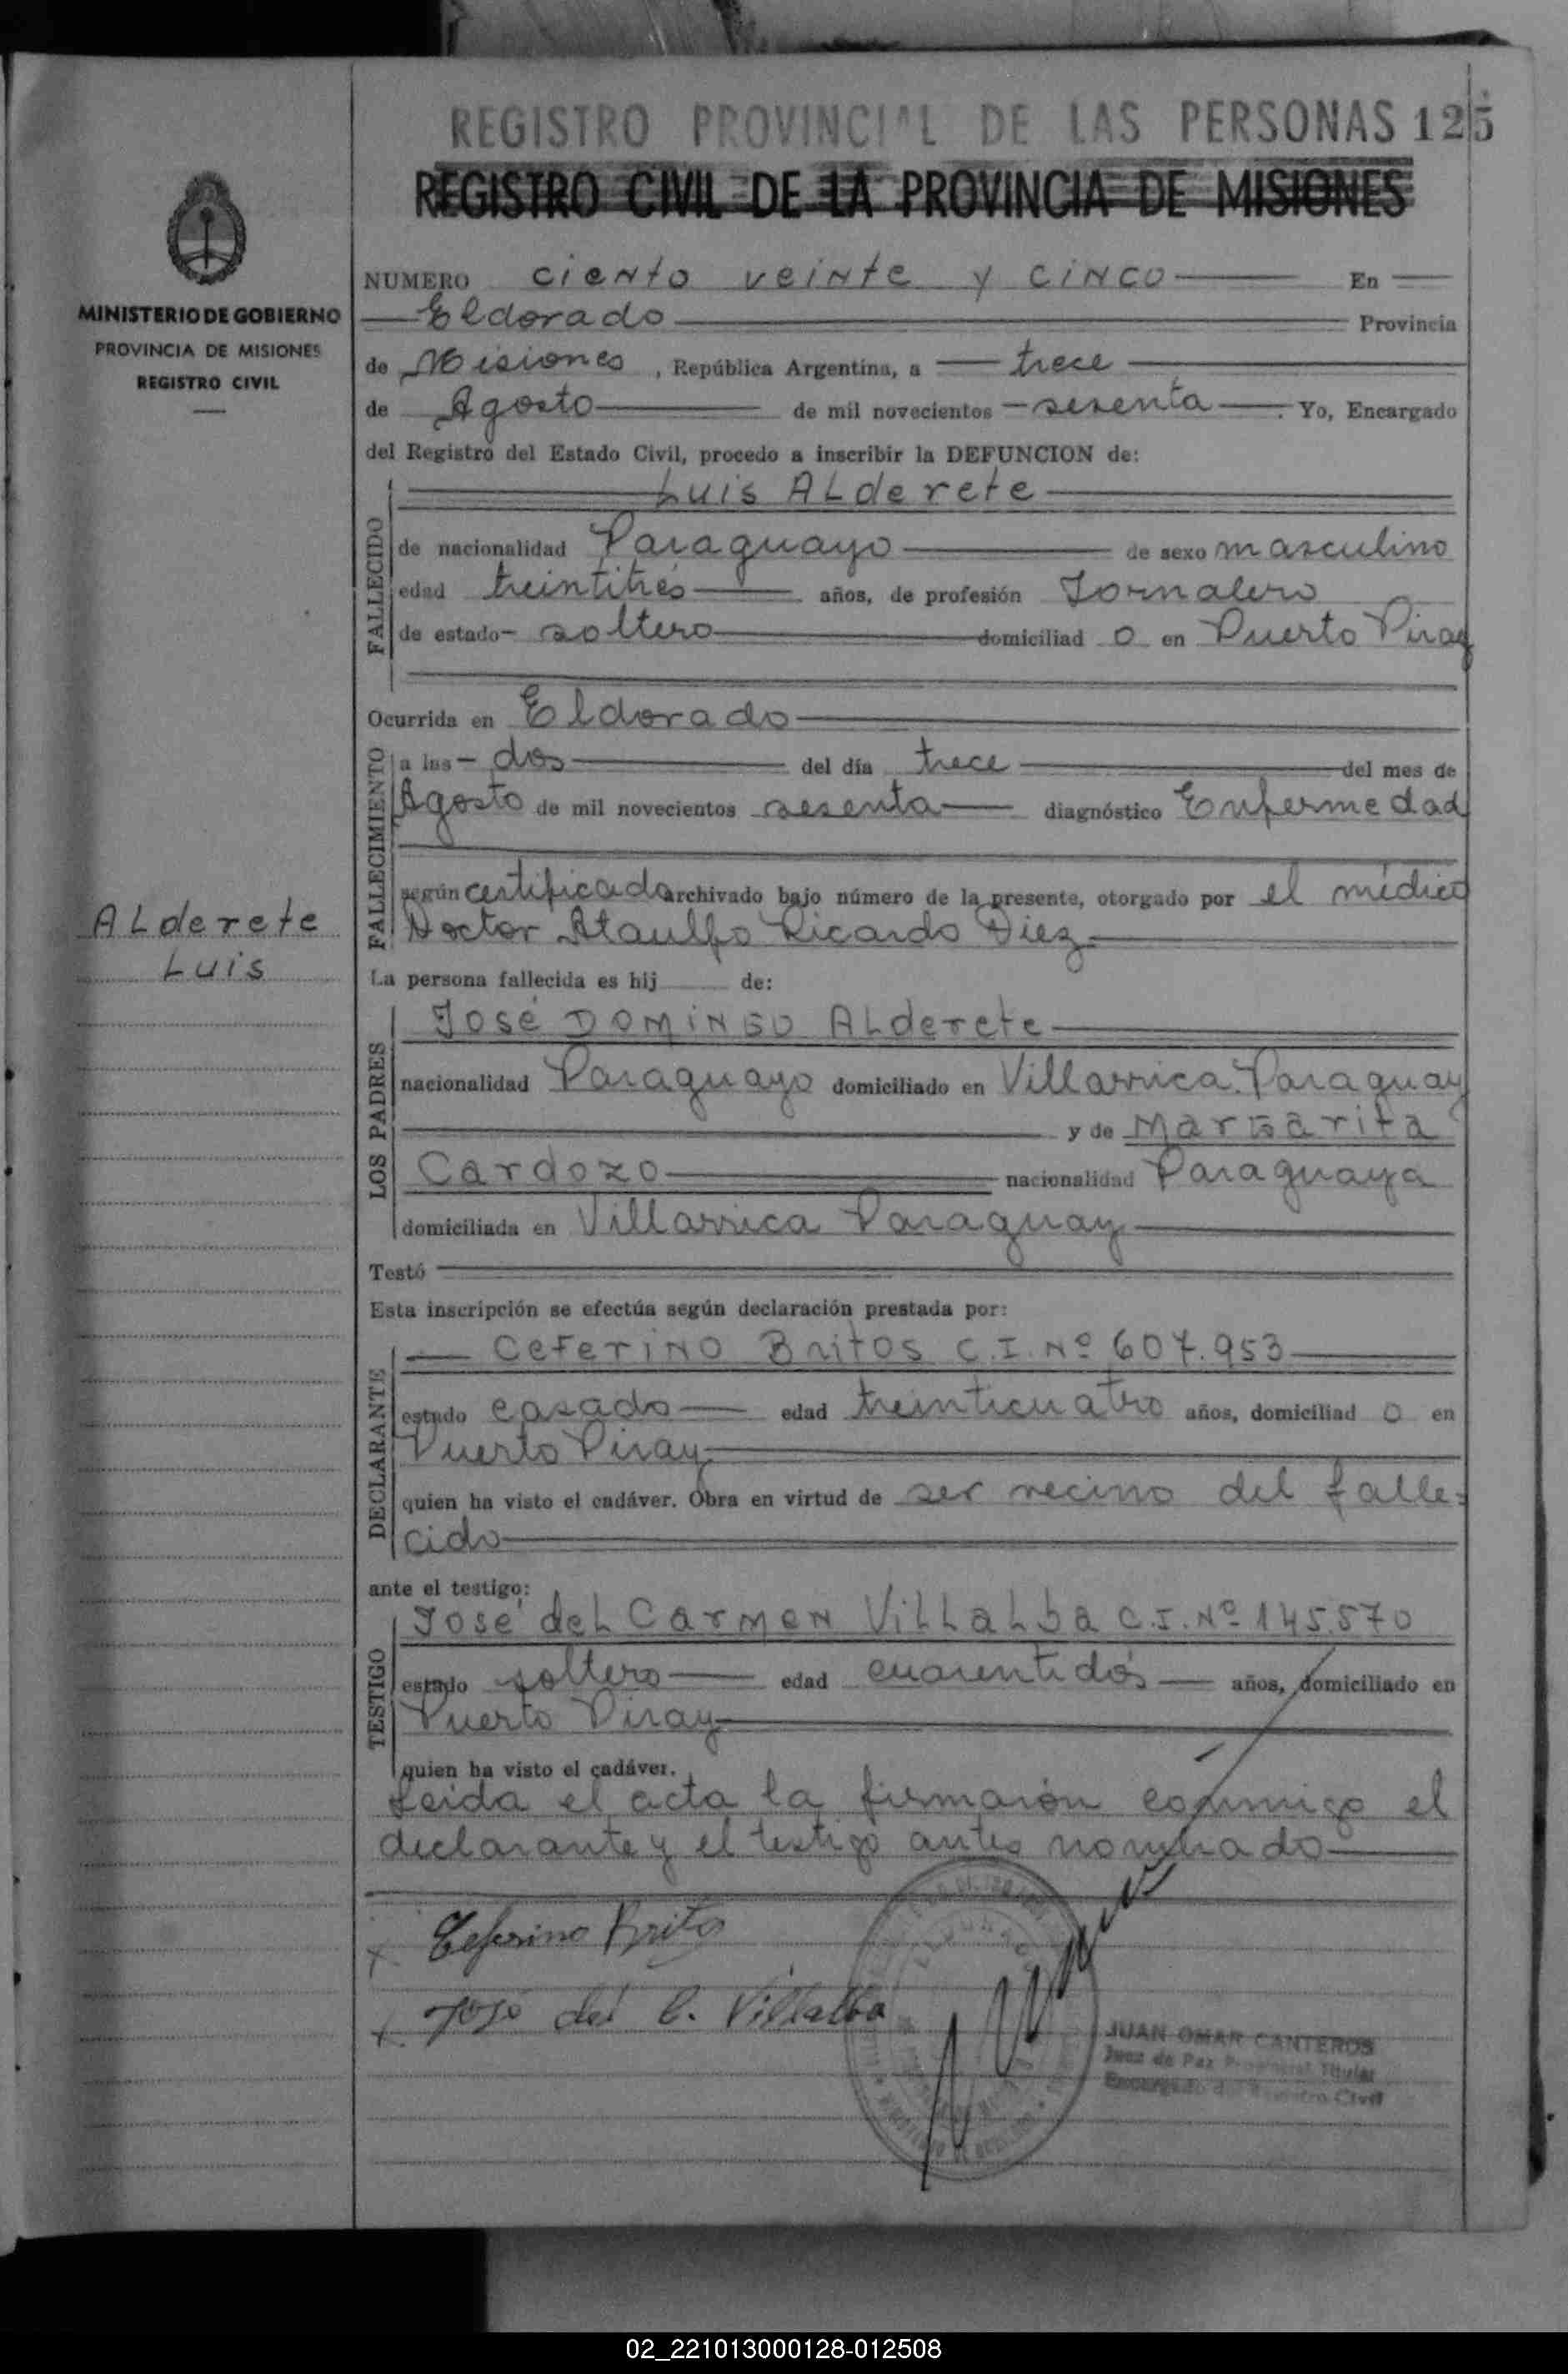 REGISTRO PROVINCIAL DE LAS PERSONAS 125
REGISTRO CIVIL DE LA PROVINCIA DE MISIONES
MINISTERIO DE GOBIERNO
PROVINCIA DE MISIONES
REGISTRO CIVIL
NUMERO ciento veinte y cinco En
Eldorado Provincia
de Misiones, República Argentina, a trece
de Agosto de mil novecientos sesenta. Yo, Encargado
del Registro del Estado Civil, procedo a inscribir la DEFUNCION de:
FALLECIDO
Luis Alderete
de nacionalidad Paraguayo de sexo masculino
edad treintitrés años, de profesión Jornalero
de estado soltero domiciliad o en Puerto Piray
Ocurrida en Eldorado
FALLECIMIENTO
a las dos del día trece del mes de
Agosto de mil novecientos sesenta diagnóstico Enfermedad
según certificado archivado bajo número de la presente, otorgado por el médico
Doctor Ataulfo Ricardo Diez
Alderete
Luis
La persona fallecida es hij de:
LOS PADRES
José Domingo Alderete
nacionalidad Paraguayo domiciliado en Villarrica. Paraguay
y de Margarita
Cardozo nacionalidad Paraguaya
domiciliada en Villarrica Paraguay
Testó
Esta inscripción se efectúa según declaración prestada por:
DECLARANTE
Ceferino Britos C.I. Nº 607.953
estado casado edad treinticuatro años, domiciliad o en
Puerto Piray
quien ha visto el cadáver. Obra en virtud de ser vecino del falle-
cido
ante el testigo:
TESTIGO
José del Carmen Villalba C.I. Nº 145.570
estado soltero edad cuarentidós años, domiciliado en
Puerto Piray
quien ha visto el cadáver.
Leida el acta la firmarón conmigo el
declarante y el testigo antes nombrado
x Ceferino Britos
x José del C. Villalba
JUAN OMAR CANTEROS
Juez de Paz Provincial Titular
Encargado del Registro Civil
02_221013000128-012508